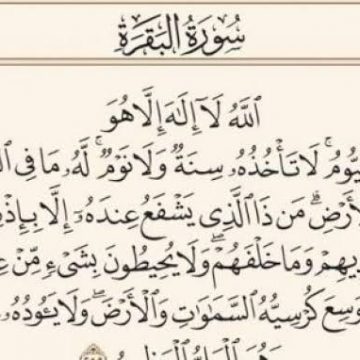 سُورَةُ البَقَرَةِ
ٱللَّهُ لَآ إِلَٰهَ إِلَّا هُوَ
لَا تَأْخُذُهُۥ سِنَةٌ وَلَا نَوْمٌ ۚ لَّهُۥ مَا فِى
مَن ذَا ٱلَّذِى يَشْفَعُ عِندَهُۥٓ إِلَّا
وَمَا خَلْفَهُمْ ۖ وَلَا يُحِيطُونَ بِشَىْءٍ مِّنْ
كُرْسِيُّهُ ٱلسَّمَٰوَٰتِ وَٱلْأَرْضَ ۖ وَلَا يَـُٔودُهُۥ